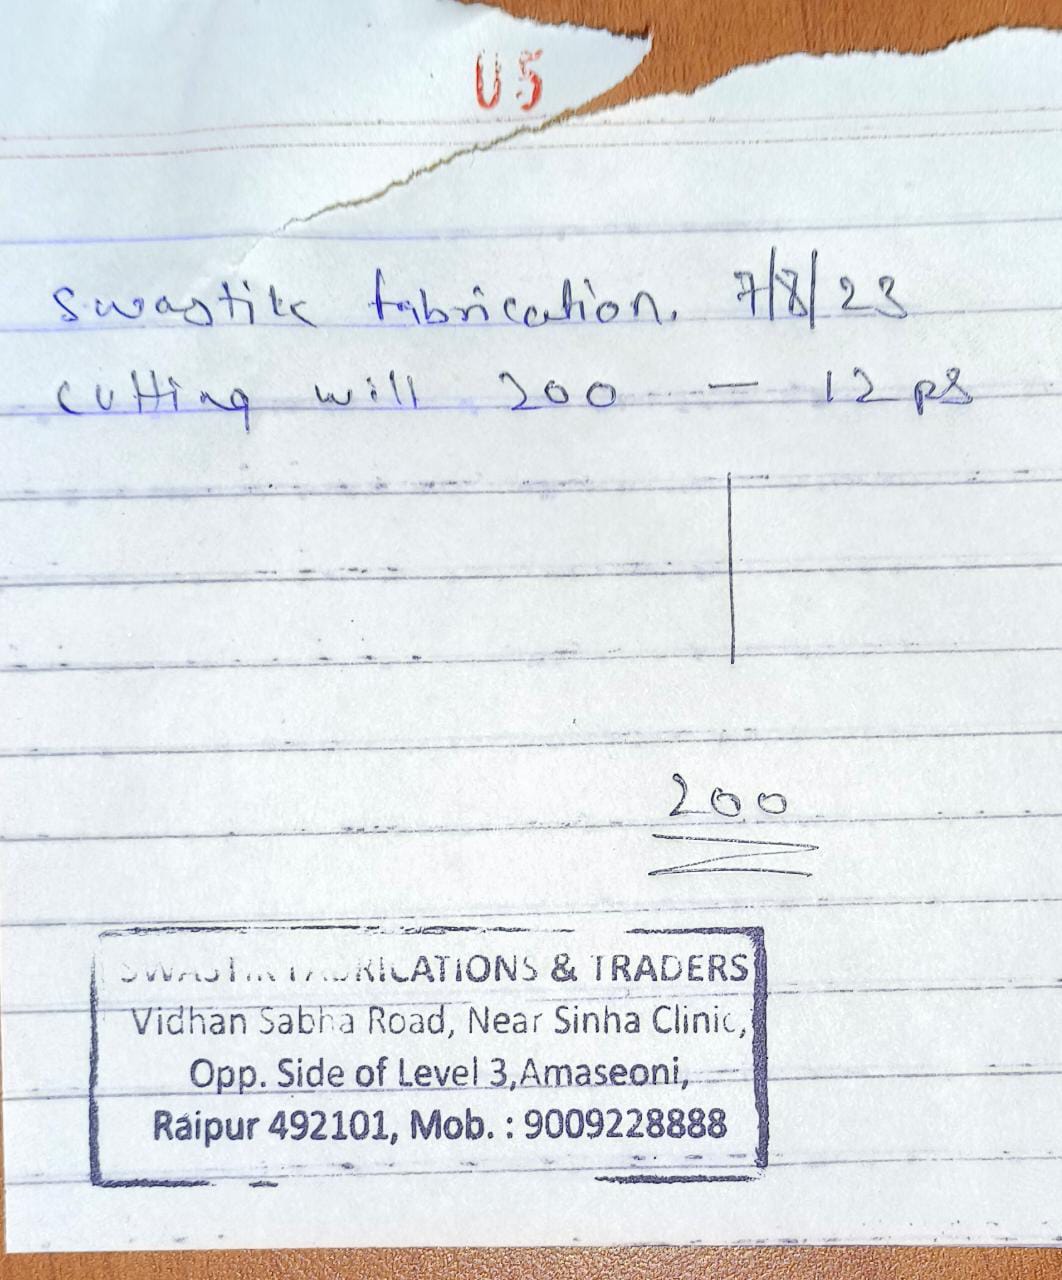 05
Swastik fabrication. 7/8/23
cutting will 200 — 12 ps
200
SWASTIK FABRICATIONS & TRADERS
Vidhan Sabha Road, Near Sinha Clinic,
Opp. Side of Level 3,Amaseoni,
Raipur 492101, Mob. : 9009228888